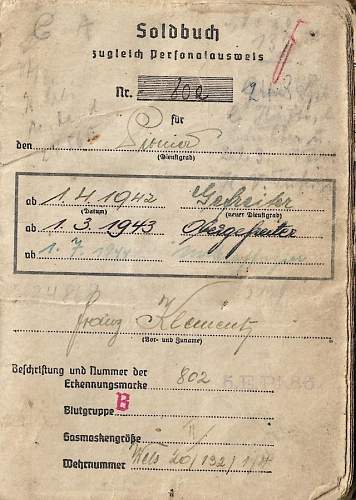 Soldbuch
zugleich Personalausweis
Nr. 802
für
den Pionier
(Dienstgrad)
ab 1.4.1942 Gefreiter
(Datum) (neuer Dienstgrad)
ab 1.3.1943 Obergefreiter
ab 1.7.
Franz Klementz
(Vor- und Zuname)
Beschriftung und Nummer der
Erkennungsmarke 802
Blutgruppe B
Gasmaskengröße
Wehrnummer Wels 20/132/